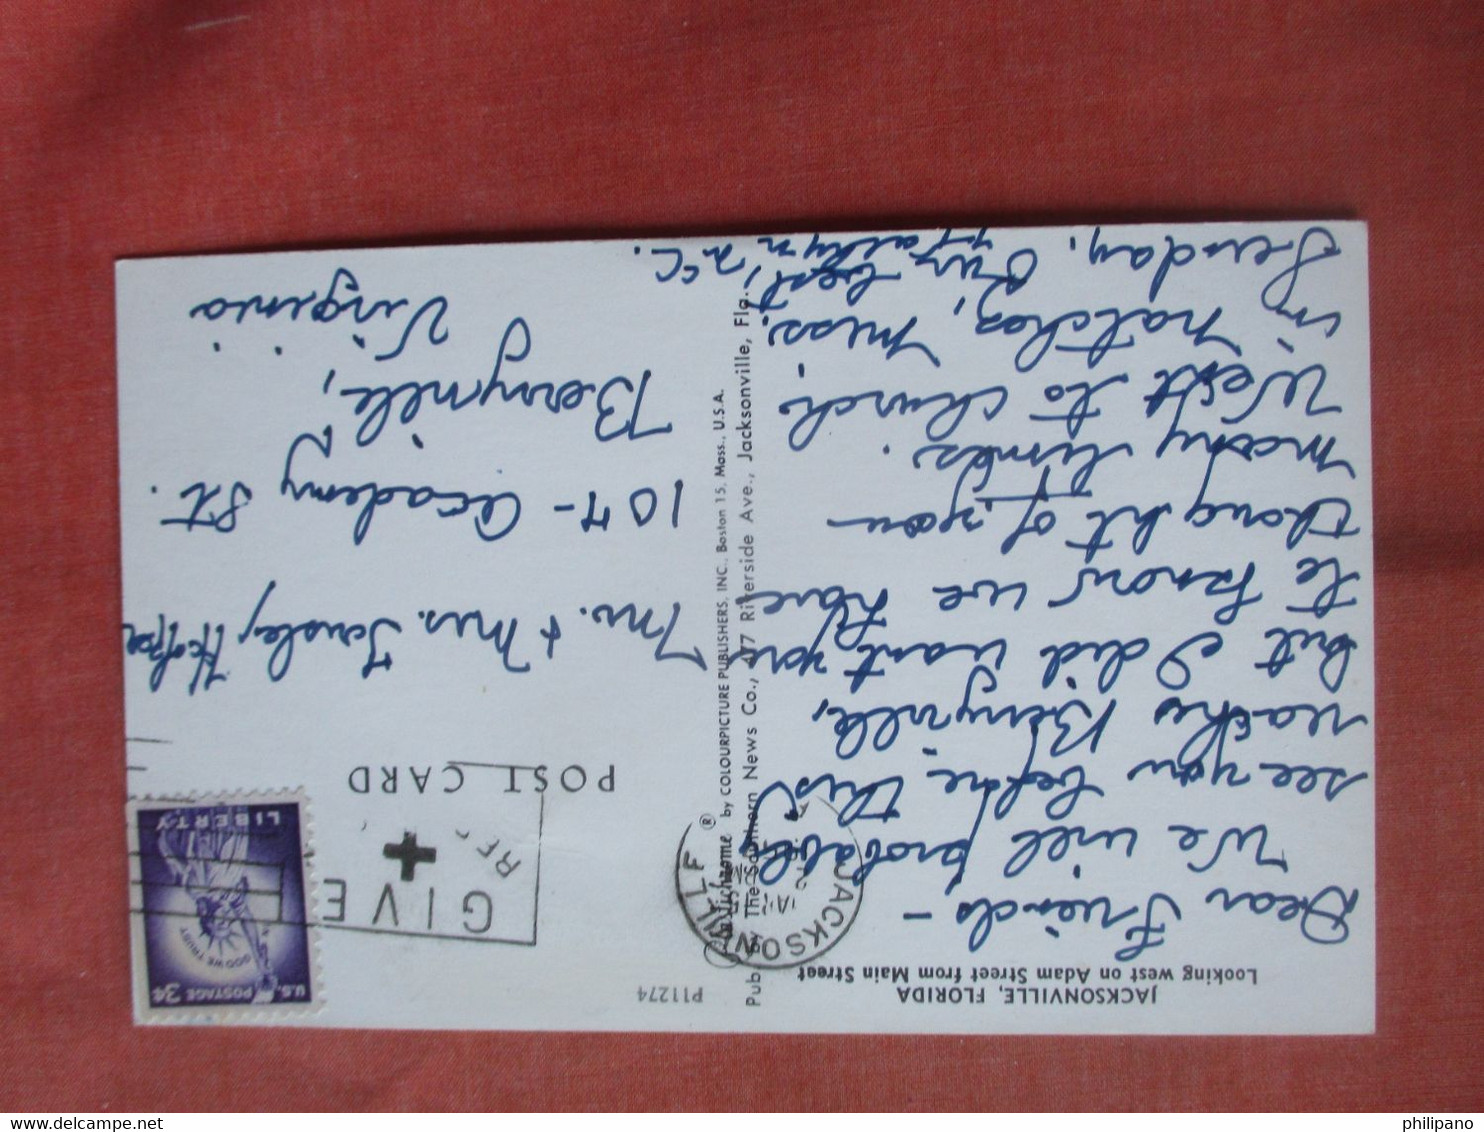 JACKSONVILLE, FLORIDA
Looking west on Adam Street from Main Street
Dear Friends -
We will probably
see you before this
reaches Berryville,
but I did want you
to know we have
thought of you
many times.
Went to church
in Natchez, Miss.
Sunday. Our best,
P11274
Plastichrome ® by COLOURPICTURE PUBLISHERS, INC., Boston 15, Mass., U.S.A.
Pub. by The Southern News Co., 477 Riverside Ave., Jacksonville, Fla.
JACKSONVILLE
GIVE
POST CARD
U.S. POSTAGE 3¢
IN GOD WE TRUST
LIBERTY
Mr. & Mrs.
Academy St.
Berryville,
Virginia
philipano
delcampe.net